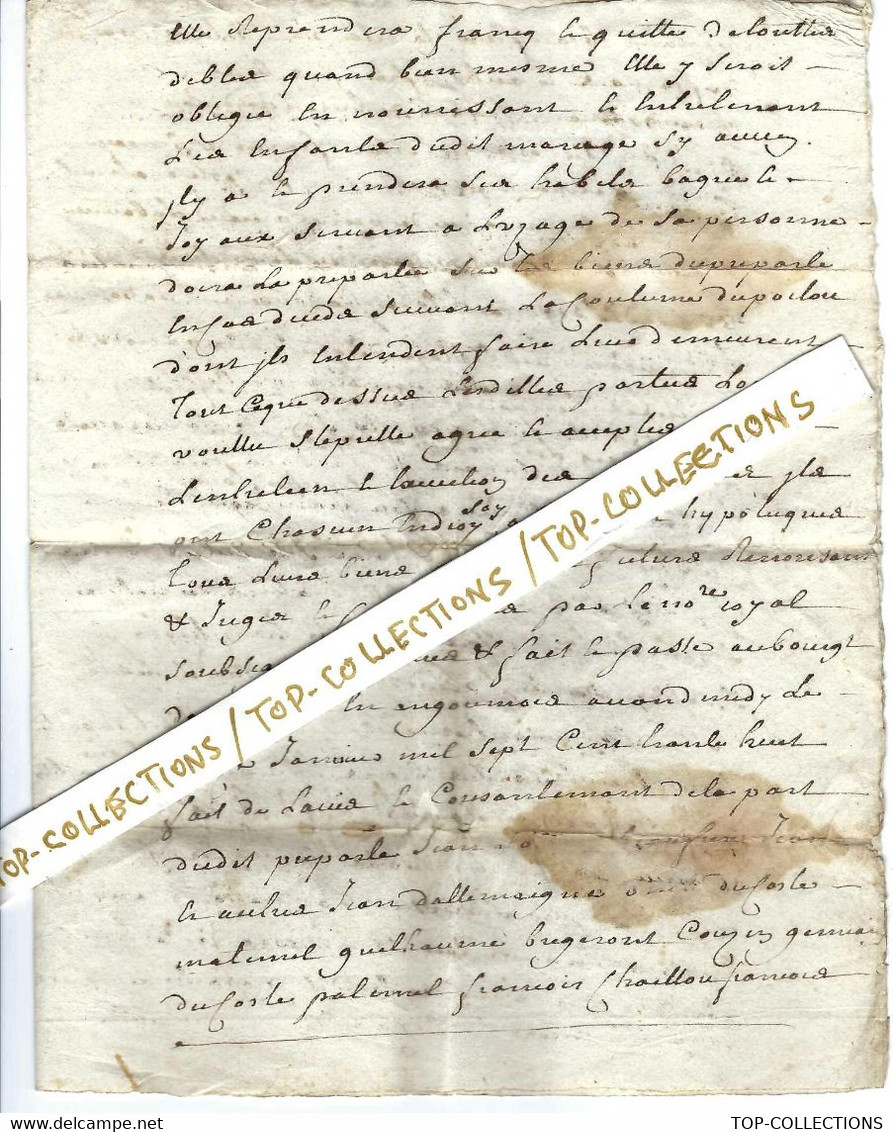 Elle Reprendera francq et quitte de touttes
debtes quand bien mesme Elle y seroit
obligée En nourrissant et Entretenant
Les Enfants dudit mariage s'y aucun
jl y a et prendera ses habits bagues et
Joyaux servant a L'uzage de sa personne
sur les biens dupreparlé
En Cas dudit suivant La Coutume dupoitou
d'ont jls Entendent faire Leurs demeurent
Tout Ceque dessus Lesdittes parties L'ont
voullu Stipullé agréé et accepté
L'entretien et l'execution des jls
ont Chascun Endroy soy hypotequés
Tous Leurs biens future Renonsant
& Jugés et par le nore royal
soubsigné & fait et passé aubourgt
de En angoumois avant midy Le
Janvier mil sept Cent trante huit
fait de L'avis et Consantement dela part
dudit preparlé Jean
et autre Jean dallemaigne ducosté
maternel guilhaume bregeront Couzin germain
ducosté paternel francois Chaillou francois
TOP-COLLECTIONS / TOP-COLLECTIONS / TOP-COLLECTIONS / TOP-COLLECTIONS
TOP-COLLECTIONS